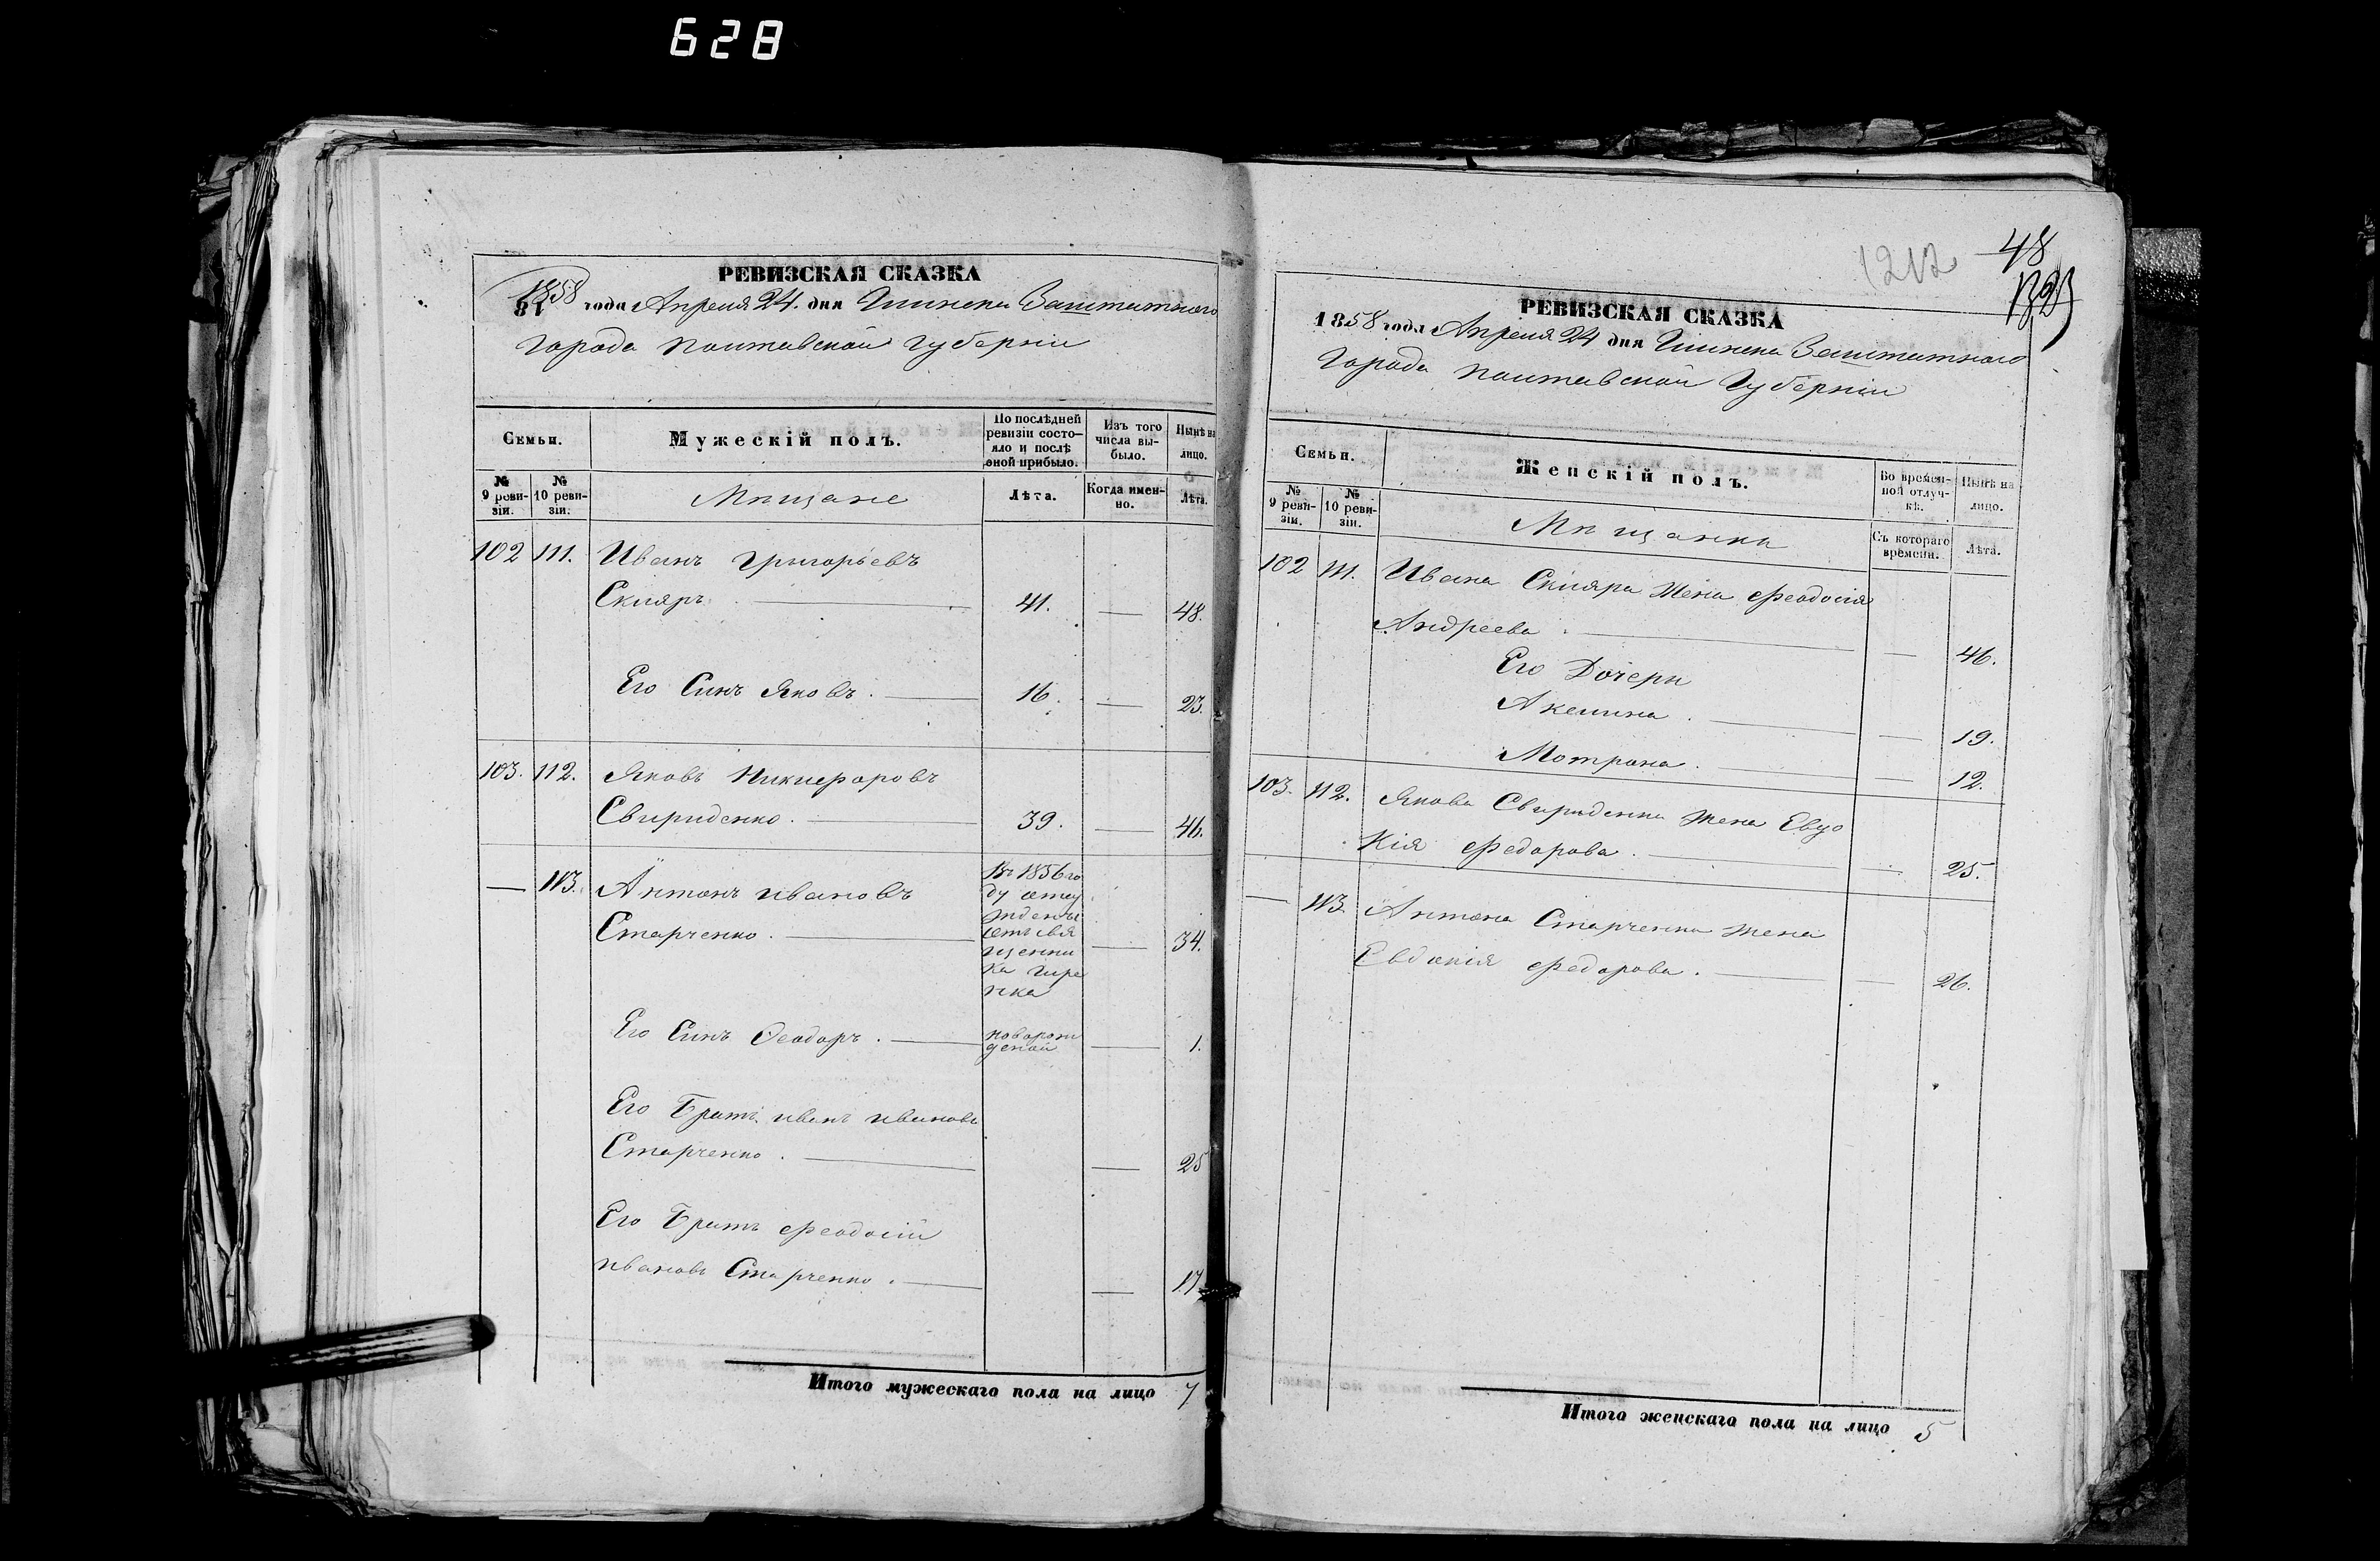 628
РЕВИЗСКАЯ СКАЗКА
1858 года Апреля 24. дня Глинска Заштатнаго
города Полтавской губерніи
Семьи.
Мужескій полъ.
По послѣдней ревизіи состояло и послѣ оной прибыло.
Изъ того числа выбыло.
Нынѣ на лицо.
№ 9 ревизіи.
№ 10 ревизіи.
Мѣщане
Лѣта.
Когда именно.
Лѣта.
102 111. Иванъ Григорьевъ
Скляръ. 41. — 48.
Его Синъ Яковъ. 16. — 23.
103. 112. Яковъ Никифоровъ
Свириденко. 39. — 46.
— 113. Антонъ Ивановъ
Старченко. — 34.
Въ 1856 го
ду
отъ свя
щенни
ка
Его Синъ Ѳеодоръ. новорож
деной — 1.
Его Братъ Иванъ Ивановъ
Старченко. — 25
Его Братъ Феодосій
Ивановъ Старченко. — 17
Итого мужескаго пола на лицо 7
1212 48
РЕВИЗСКАЯ СКАЗКА
1858 года Апреля 24 дня Глинска Заштатнаго
города Полтавской Губерніи
Семьи.
Женскій полъ.
Во временной отлучкѣ.
Нынѣ на лицо.
№ 9 ревизіи.
№ 10 ревизіи.
Мѣщанки
Съ котораго времени.
Лѣта.
102 111. Ивана Скляра Жена Феодосія
Андреева. — 46.
Его Дочери
Акелина. — 19.
Мотрона. — 12.
103. 112. Якова Свириденка Жена Евдо
кія Федорова. — 25.
— 113. Антона Старченка Жена
Евдокія Федорова. — 26.
Итого женскаго пола на лицо 5